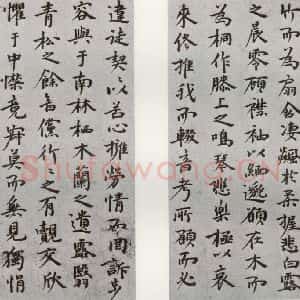 竹而為扇含淒飈於柔握悲白露
之晨零顧襟袖以緬邈在木而
為桐作膝上之鳴琴悲樂極以哀
來終推我而輟音考所願而必
違徒契〻以苦心擁勞情而罔訴步
容與于南林栖木蘭之遺露翳
青松之餘儻行行之有覿交欣
懼于中襟竟寂莫而無見獨悁
Shufawang.CN